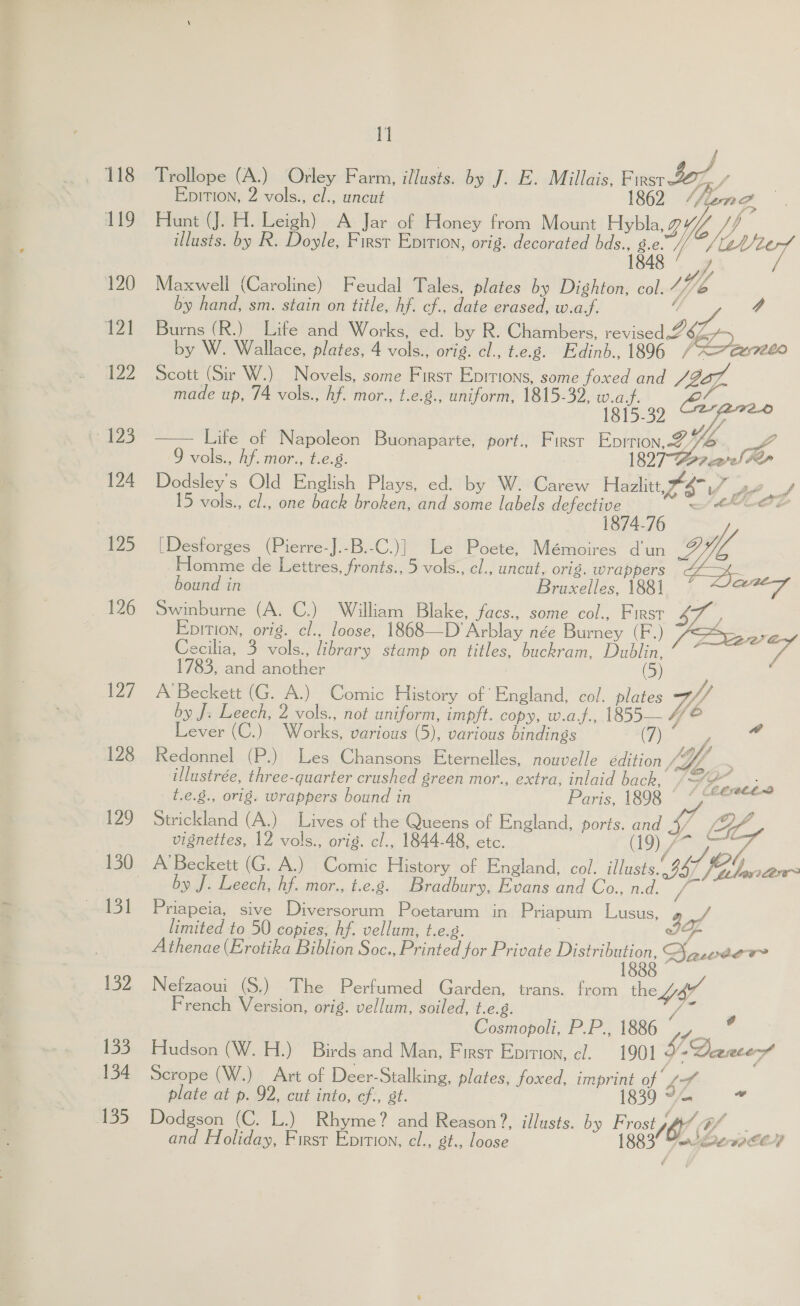 11
118 Trollope (A.) Orley Farm, illusts. by J. E. Millais, First
Edition, 2 vols., cl., uncut 1862
119 Hunt (J. H. Leigh) A Jar of Honey from Mount Hybla,
illusts. by R. Doyle, First Edition, orig. decorated bds., g.e.
1848
120 Maxwell (Caroline) Feudal Tales, plates by Dighton, col.
by hand, sm. stain on title, hf. cf., date erased, w.a.f.
121 Burns (R.) Life and Works, ed. by R. Chambers, revised
by W. Wallace, plates, 4 vols., orig. cl., t.e.g. Edinb., 1896
122 Scott (Sir W.) Novels, some First Editions, some foxed and
made up, 74 vols., hf. mor., t.e.g., uniform, 1815-32, w.a.f.
1815-32
123 —— Life of Napoleon Buonaparte, port., First Edition,
9 vols., hf. mor., t.e.g. 1827
124 Dodsley's Old English Plays, ed. by W. Carew Hazlitt,
15 vols., cl., one back broken, and some labels defective
1874-76
125 [Desforges (Pierre-J.-B.-C.)] Le Poete, Mémoires d'un
Homme de Lettres, fronts., 5 vols., cl., uncut, orig. wrappers
bound in Bruxelles, 1881
126 Swinburne (A. C.) William Blake, facs., some col., First
Edition, orig. cl., loose, 1868—D'Arblay née Burney (F.)
Cecilia, 3 vols., library stamp on titles, buckram, Dublin,
1783, and another (5)
127 A'Beckett (G. A.) Comic History of England, col. plates
by J. Leech, 2 vols., not uniform, impft. copy, w.a.f., 1855—
Lever (C.) Works, various (5), various bindings (7)
128 Redonnel (P.) Les Chansons Eternelles, nouvelle édition
illustrée, three-quarter crushed green mor., extra, inlaid back,
t.e.g., orig. wrappers bound in Paris, 1898
129 Strickland (A.) Lives of the Queens of England, ports. and
vignettes, 12 vols., orig. cl., 1844-48, etc. (19)
130 A'Beckett (G. A.) Comic History of England, col. illusts.
by J. Leech, hf. mor., t.e.g. Bradbury, Evans and Co., n.d.
131 Priapeia, sive Diversorum Poetarum in Priapum Lusus,
limited to 50 copies, hf. vellum, t.e.g.
Athenae (Erotika Biblion Soc., Printed for Private Distribution,
1888
132 Nefzaoui (S.) The Perfumed Garden, trans. from the
French Version, orig. vellum, soiled, t.e.g.
Cosmopoli, P.P., 1886
133 Hudson (W. H.) Birds and Man, First Edition, cl. 1901
134 Scrope (W.) Art of Deer-Stalking, plates, foxed, imprint of
plate at p. 92, cut into, cf., gt. 1839
135 Dodgson (C. L.) Rhyme? and Reason?, illusts. by Frost
and Holiday, First Edition, cl., gt., loose 1883